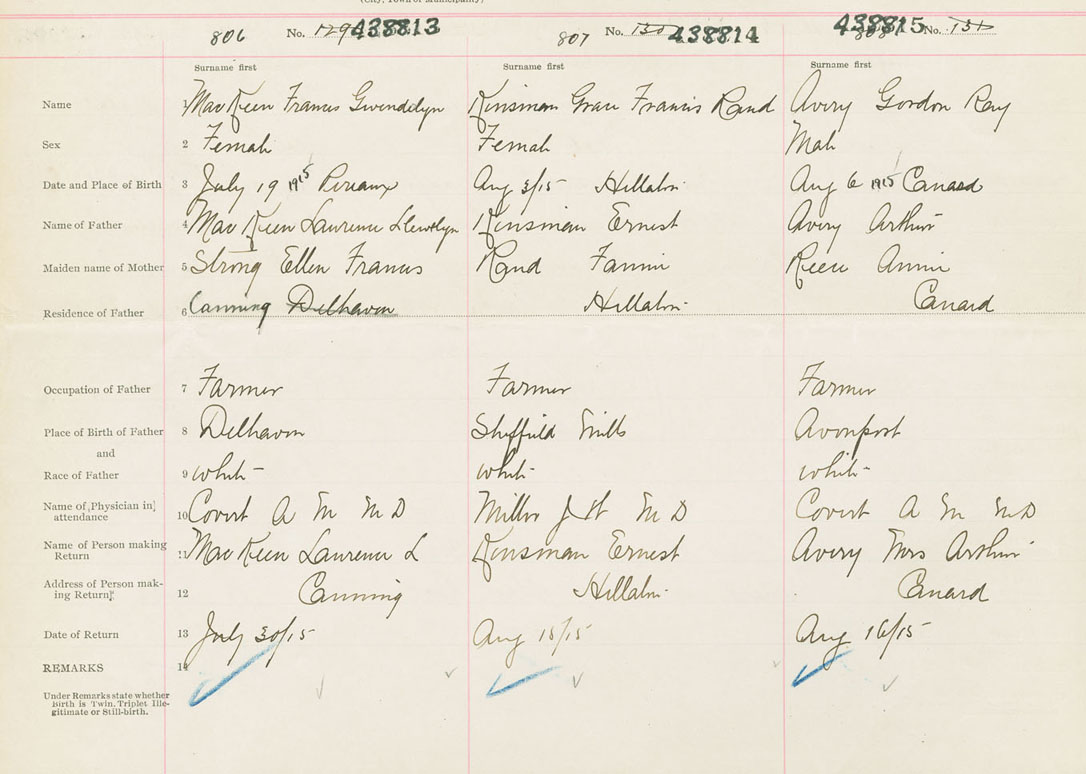 (City, Town or Municipality)
806 No. 129 438813 807 No. 130 438814 438815 808 No. 131
Surname first Surname first Surname first
Name 1 MacKeen Francis Gwendelyn Kinsman Grace Francis Rand Avery Gordon Ray
Sex 2 Female Female Male
Date and Place of Birth 3 July 19 1915 Pereaux Aug 3/15 Hillaton Aug 6 1915 Canard
Name of Father 4 MacKeen Laurence Llewelyn Kinsman Ernest Avery Arthur
Maiden name of Mother 5 Strong Ellen Francis Rand Fannie Annie
Residence of Father 6 Canning Delhaven Hillaton Canard
Occupation of Father 7 Farmer Farmer Farmer
Place of Birth of Father 8 Delhaven Sheffield Mills Avonport
and
Race of Father 9 white white white
Name of Physician in attendance 10 Covert A M M D Miller J W M D Covert A M M D
Name of Person making Return 11 MacKeen Laurence L Kinsman Ernest Avery Mrs Arthur
Address of Person making Return 12 Canning Hillaton Canard
Date of Return 13 July 30/15 Aug 15/15 Aug 16/15
REMARKS 14
Under Remarks state whether
Birth is Twin. Triplet Ille-
gitimate or Still-birth.